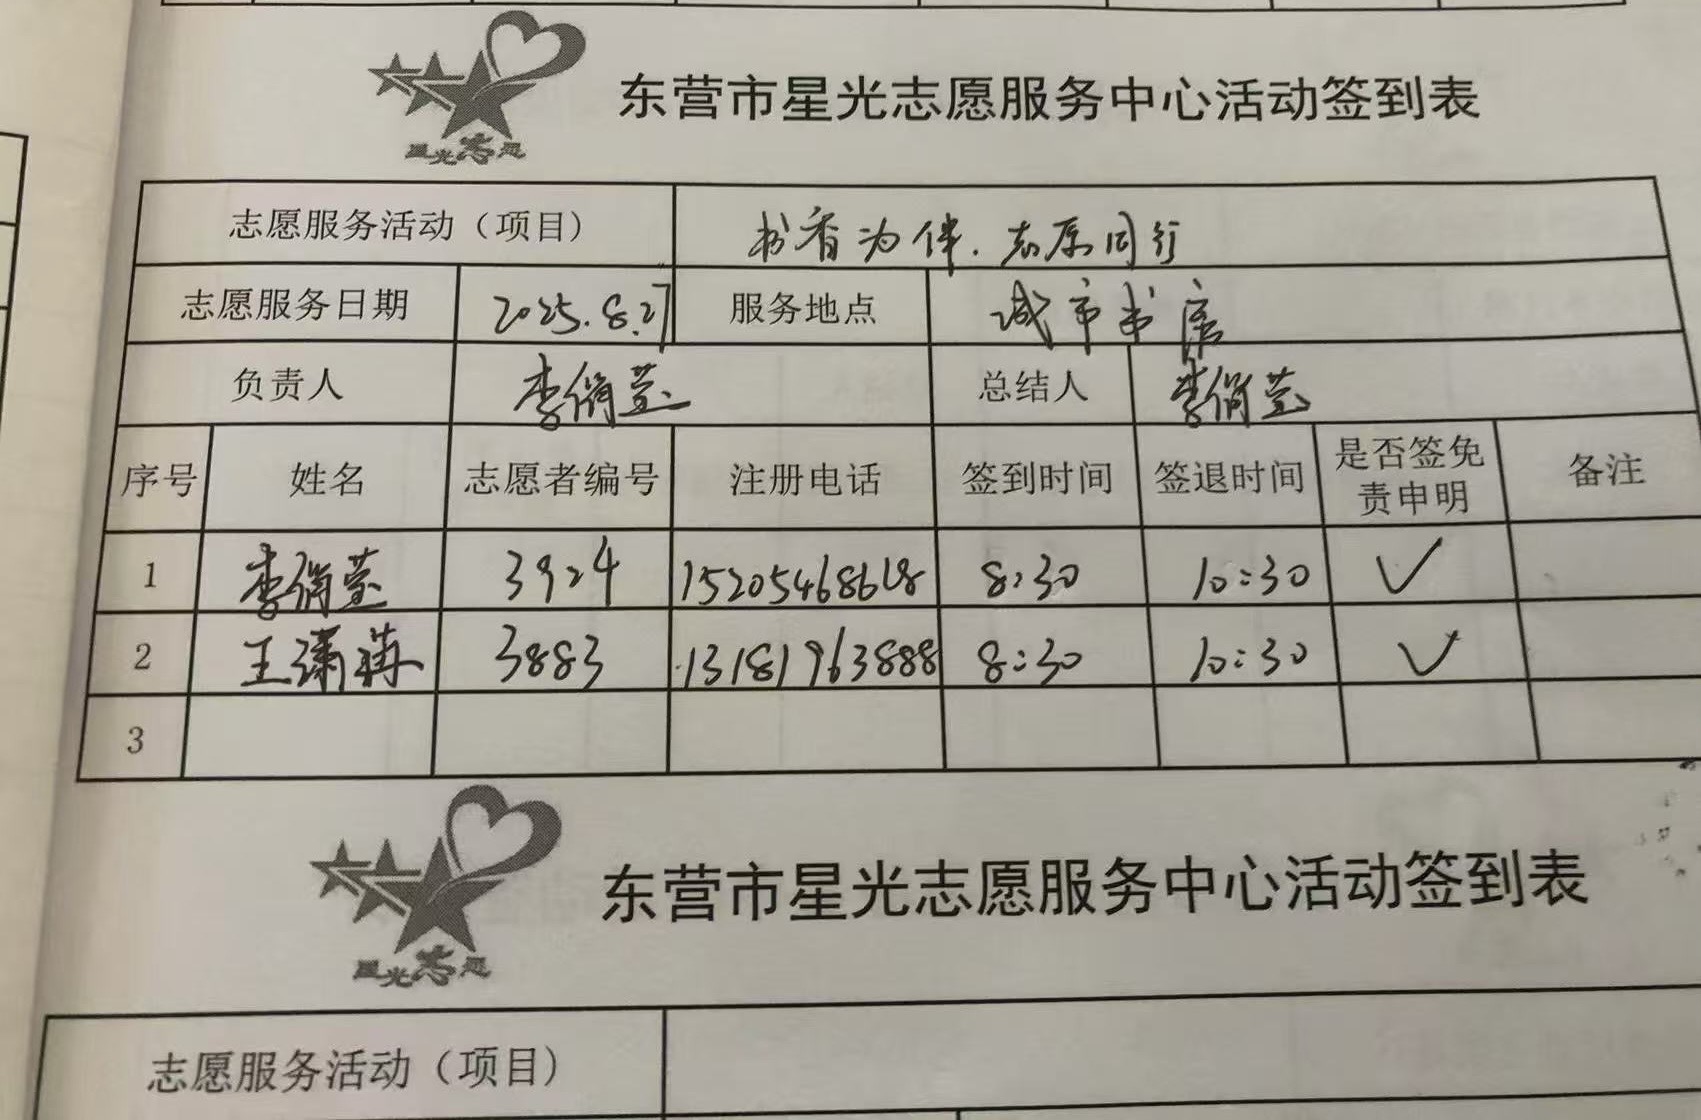 星光志愿
东营市星光志愿服务中心活动签到表
志愿服务活动（项目） 书香为伴.志愿同行
志愿服务日期 2025.8.27 服务地点 城市书房
负责人 李俏莹 总结人 李俏莹
序号 姓名 志愿者编号 注册电话 签到时间 签退时间 是否签免责申明 备注
1 李俏莹 3924 8:30 10:30 ✓
2 王潇苒 3883 13181963888 8:30 10:30 ✓
3
星光志愿
东营市星光志愿服务中心活动签到表
志愿服务活动（项目）